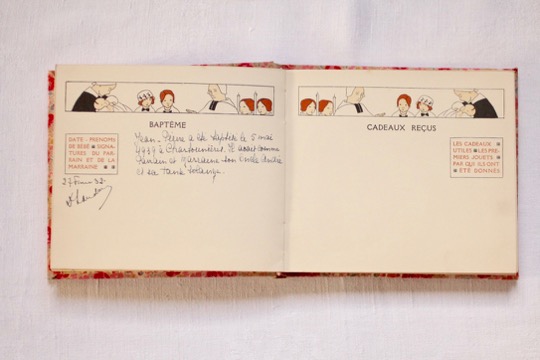 BAPTÊME
DATE · PRÉNOMS
DE BÉBÉ ■ SIGNA-
TURES DU PAR-
RAIN ET DE LA
MARRAINE ■ ■
Jean-Pierre a été baptisé le 5 mai
1939 à Charbonnières. Il avait comme
parrain et marraine son oncle André
et sa tante Solange.
27
CADEAUX REÇUS
LES CADEAUX
UTILES ■ LES PRE-
MIERS JOUETS ■
PAR QUI ILS ONT
ÉTÉ DONNÉS